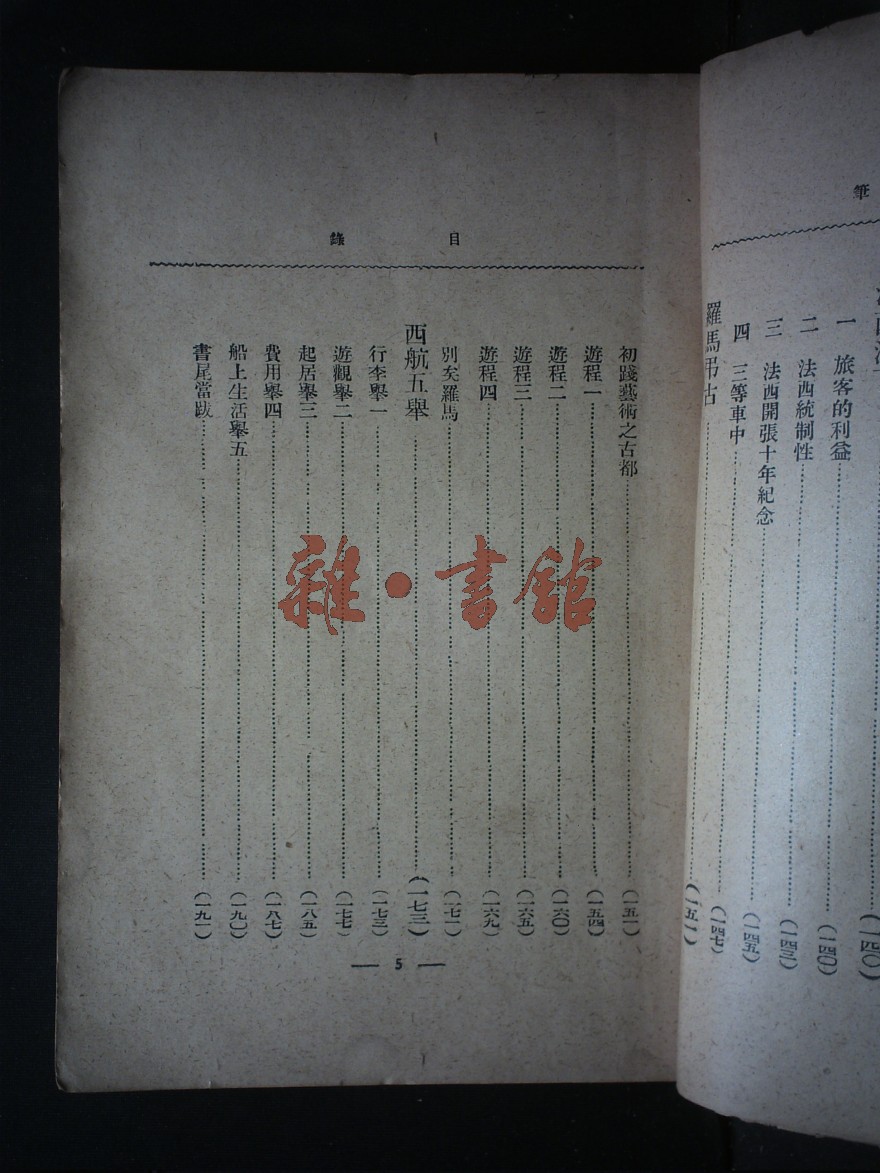 筆
(一四〇)
一 旅客的利益……(一四〇)
二 法西統制性……(一四三)
三 法西開張十年紀念……(一四五)
四 三等車中……(一四七)
羅馬弔古……(一五一)
目錄
初踐藝術之古都……(一五一)
遊程一……(一五四)
遊程二……(一六〇)
遊程三……(一六五)
遊程四……(一六九)
別矣羅馬……(一七二)
西航五舉……(一七三)
行李舉一……(一七三)
遊觀舉二……(一七七)
起居舉三……(一八五)
費用舉四……(一八七)
船上生活舉五……(一九〇)
書尾當跋……(一九一)
— 5 —
雜·書館